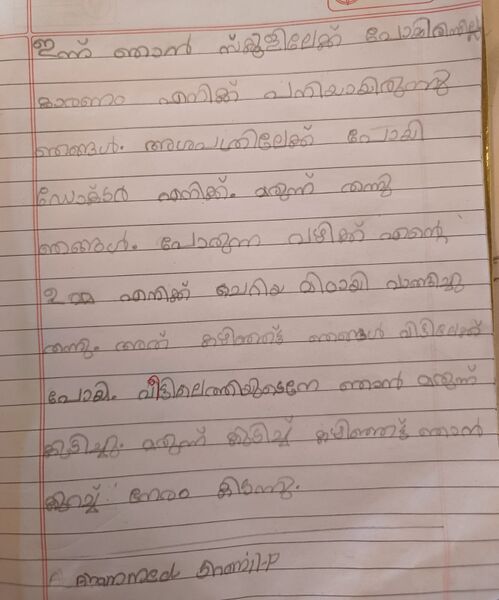 ഇന്ന് ഞാൻ സ്കൂളിലേക്ക് പോയിരുന്നില്ല
കാരണം എനിക്ക് പനിയായിരുന്നു
ഞങ്ങൾ. അശപത്രിലേക്ക് പോയി
ഡോക്ടർ എനിക്ക്. മരുന്ന് തന്നു
ഞങ്ങൾ. പോരുന്ന വഴിക്ക് എന്റെ
ഉമ്മ എനിക്ക് ചെറിയ മിഠായി വാങ്ങിച്ചു
തന്നു. അത് കഴിഞ്ഞിട്ട് ഞങ്ങൾ വീട്ടിലേക്ക്
പോയി. വീട്ടിലെത്തിയുടനേ ഞാൻ മരുന്ന്
കുടിച്ചു. മരുന്ന് കുടിച്ച് കഴിഞ്ഞിട്ട് ഞാൻ
കുറച്ച് നേരം കിടന്നു.